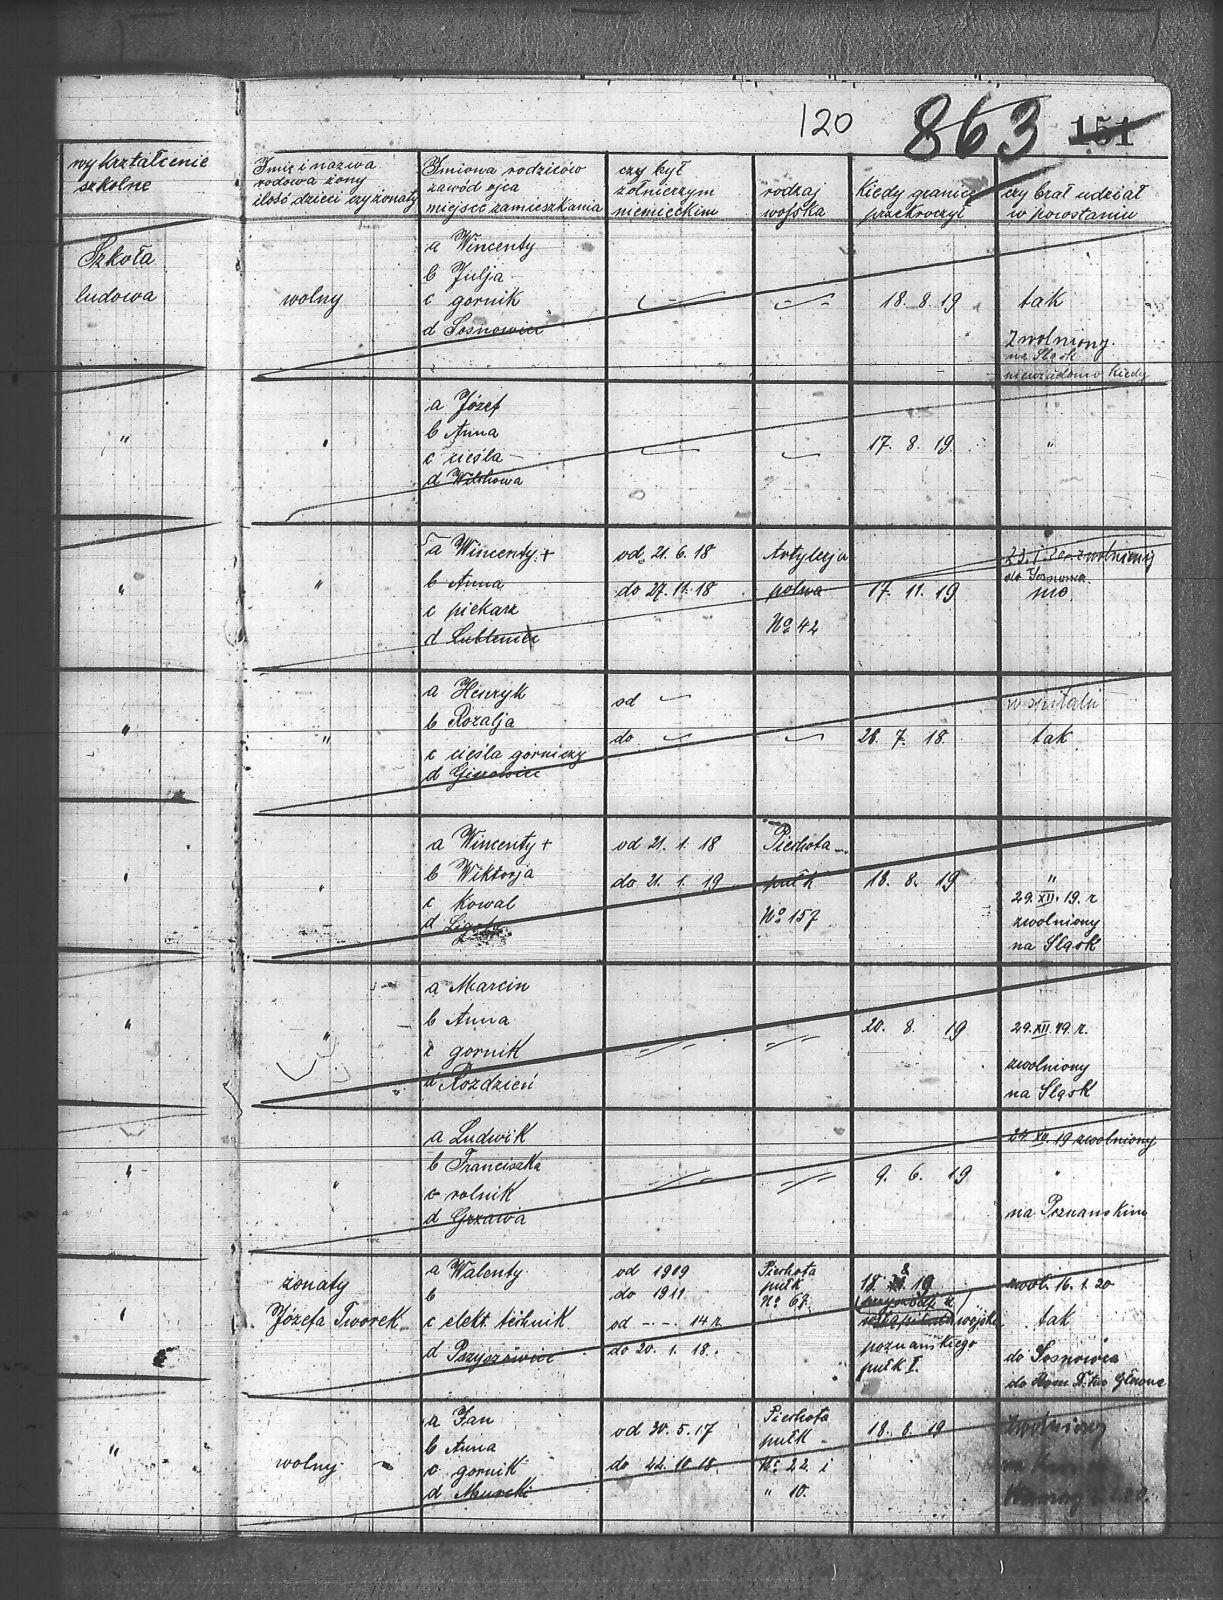 120 863 151
wykształcenie
szkolne
Imię i nazwa
rodowa żony
ilość dzieci czy żonaty
Imiona rodziców
zawód ojca
miejsce zamieszkania
czy był
żołnierzym
niemieckim
rodzaj
wojska
Kiedy granicę
przekroczył
czy brał udział
w powstaniu
Szkoła
ludowa
wolny
a Wincenty
b Julja
c gornik
d Sosnowiec
18. 8. 19
tak
Zwolniony
na Śląsk
niewiadomo kiedy
"
"
a Józef
b Anna
c cieśla
d
17. 8. 19
"
"
"
a Wincenty +
b Anna
c piekarz
d Lubleniec
od 21. 6. 18
do 27. 11. 18
Artylerja
polna
No 42
17. 11. 19
zwolniony
do Sosnowca
nie
"
"
a Henryk
b Rozalja
c cieśla górniczy
d Giszowiec
od
do
28. 7. 18.
w szpitalu
tak
"
"
a Wincenty +
b Wiktorja
c Kowal
d Ligota
od 21. 1. 18
do 21. 1. 19
Piechota
pułk
No 157
18. 8. 19
"
29. XII. 19. r
zwolniony
na Śląsk
"
"
a Marcin
b Anna
c gornik
d Rozdzień
20. 8. 19
29. XII. 19. r.
zwolniony
na Śląsk
"
"
a Ludwik
b Franciszka
c rolnik
d Grzawa
9. 6. 19
24. XII. 19 zwolniony
"
na Poznanskim
"
żonaty
Józefa Tworek
a Walenty
b
c elekt. téhnik
d Pszyszowice
od 1909
do 1911
od - - . 14 r.
do 20. 1. 18.
Piechota
pułk
No 67.
18. 8. 19
wojska
poznańskiego
pułk I.
zwol. 16. 1. 20
tak
do Sosnowca
"
wolny
a Jan
b Anna
c gornik
d Murcki
od 30. 5. 17
do 22. 10. 18.
Piechota
pułk
No 22. i
" 10.
18. 8. 19
Zwolniony